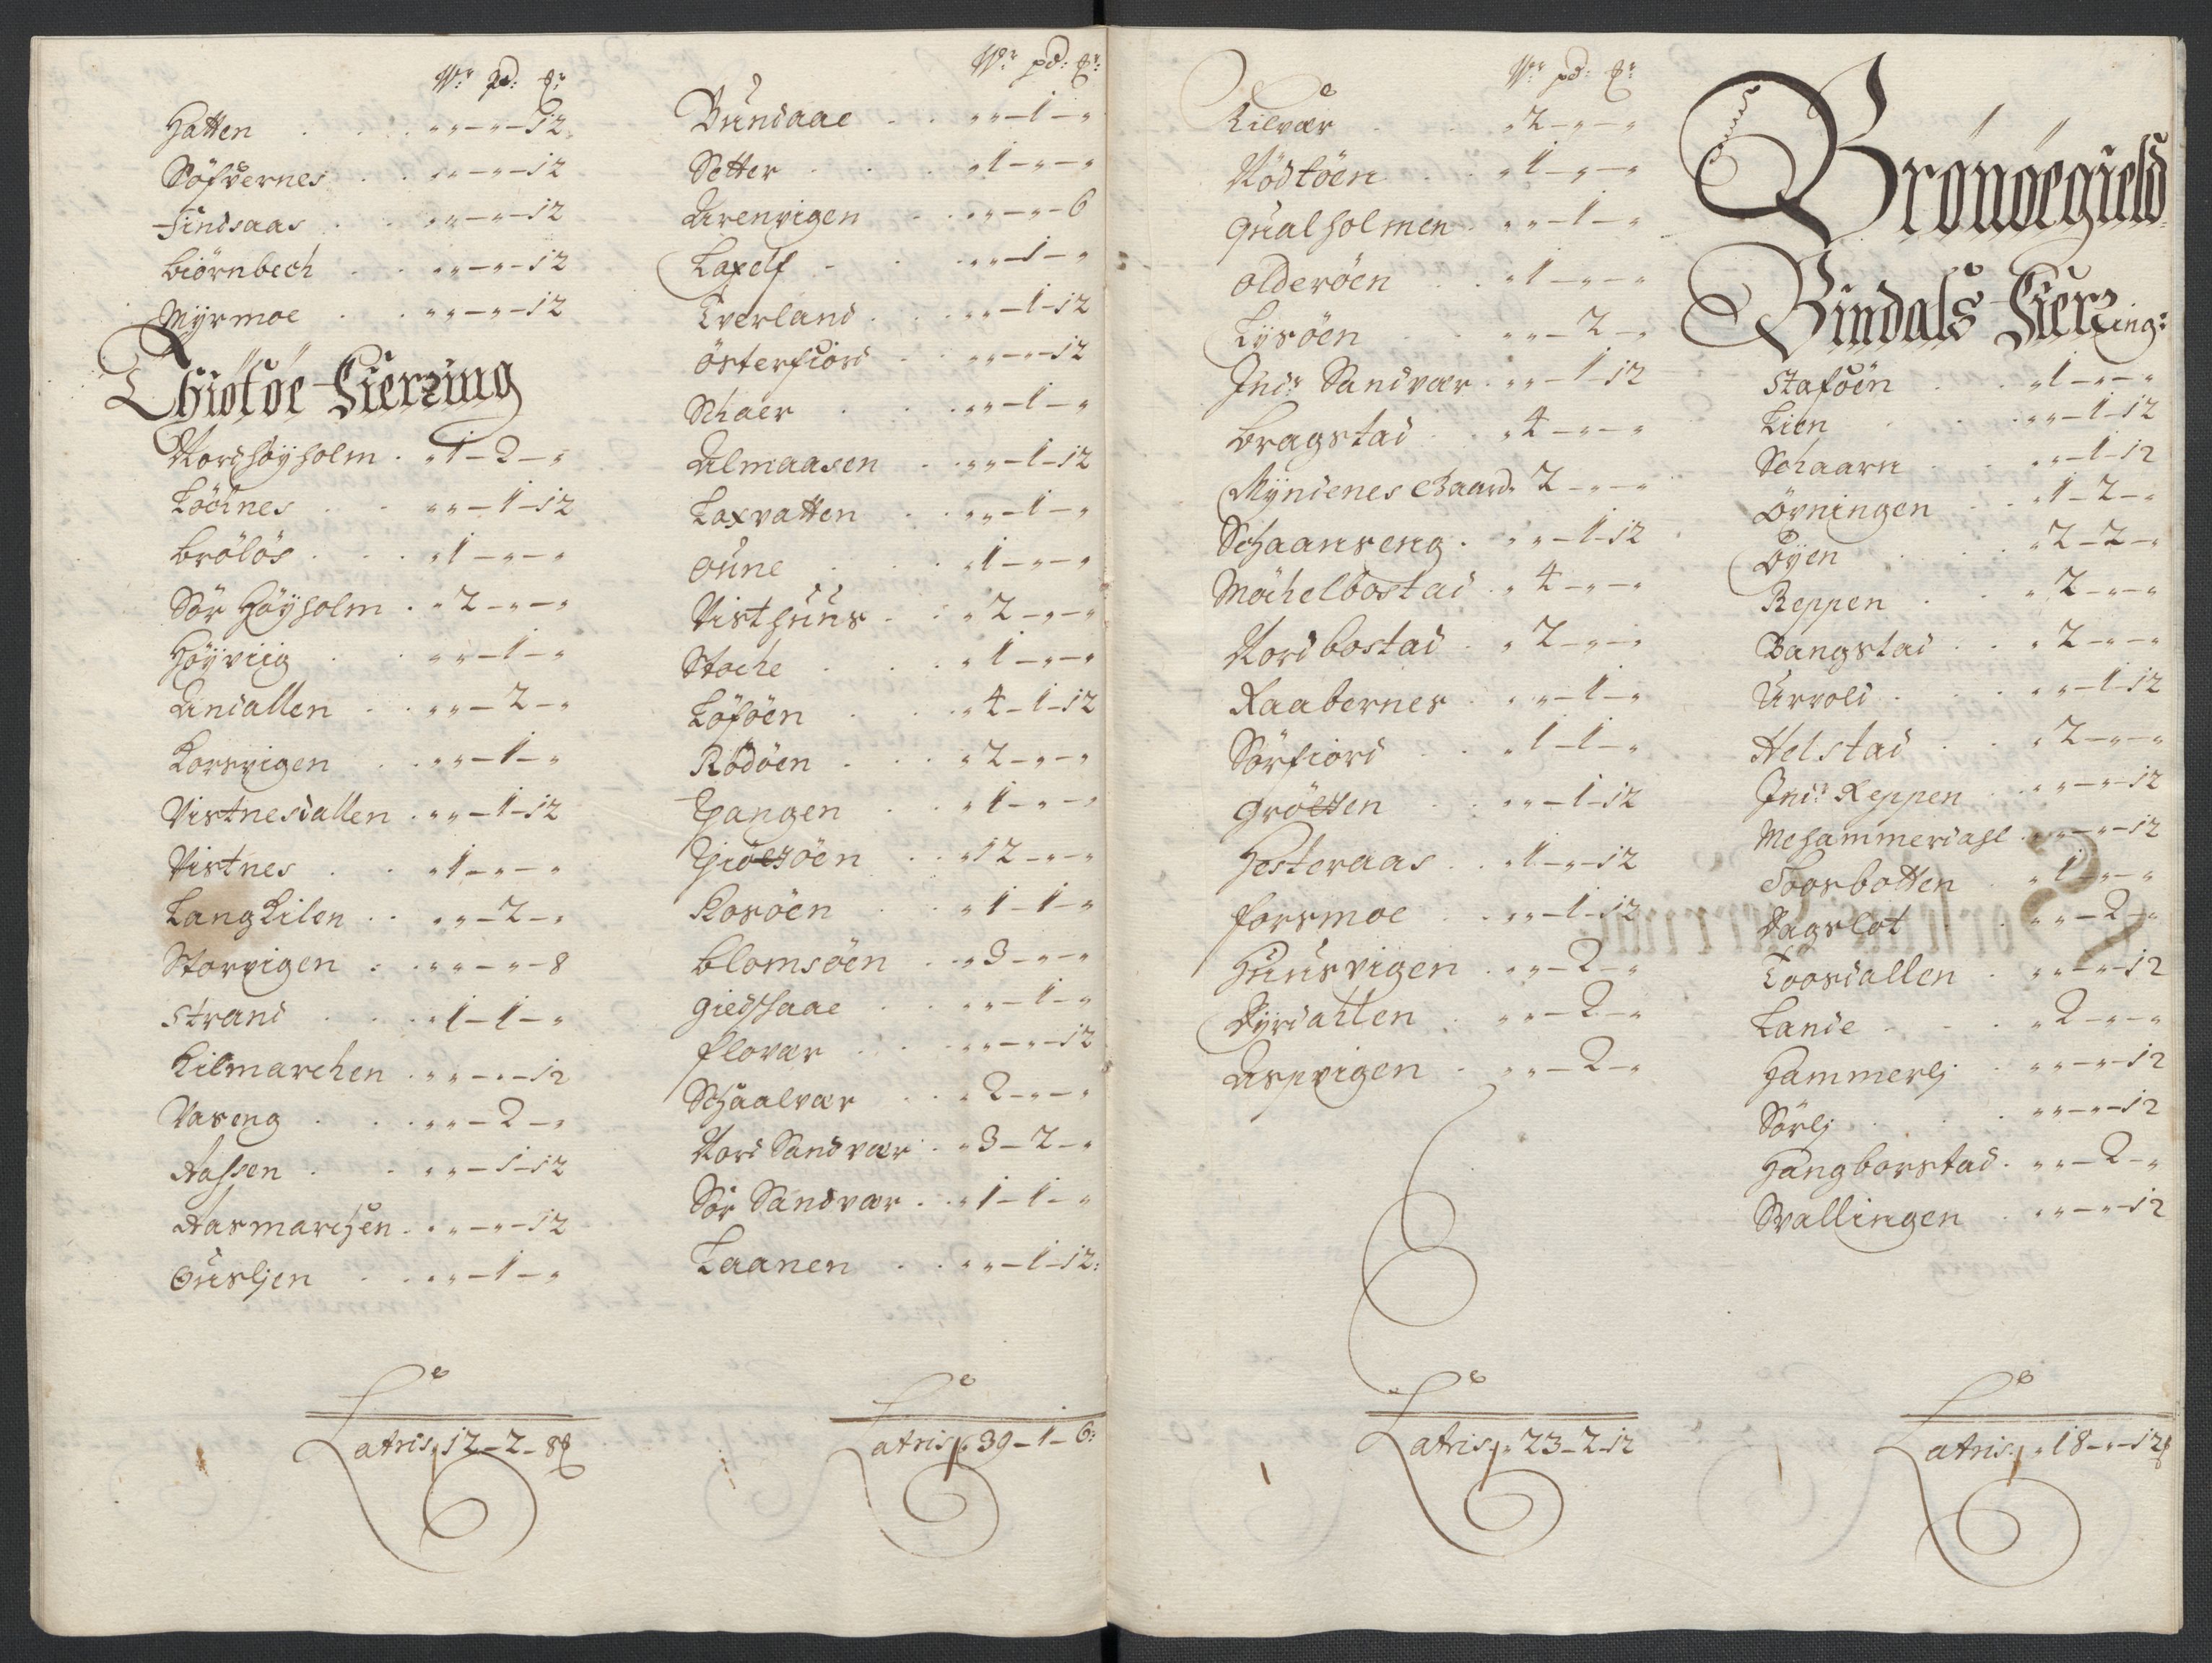 Wr pd: ℔r
Hatten . . . „ „ – „ – 12
Söfvernes . . „ „ – „ – 12
Tindsaas . . „ „ – „ – 12
Biörnbech . . „ „ – „ – 12
Myrmoe . . „ „ – „ – 12
Thiötöe Fierzing
Nordhöyholm . „ 1 – 2 – „
Löchnes . . „ „ – 1 – 12
Brölös . . . „ 1 – „ – „
Sör Höyholm . „ 2 – „ – „
Höyviig . . „ „ – 1 – „
Andallen . . „ „ – 2 – „
Korsvigen . . „ „ – 1 – „
Vistnesdallen . „ „ – 1 – 12
Vistnes . . „ 1 – „ – „
Langkilen . . „ „ – 2 – „
Storvigen . . „ „ – „ – 8
Strand . . . „ 1 – 1 – „
Kilmarchen . „ „ – „ – 12
Vaseng . . . „ „ – 2 – „
Aassen . . „ „ – 1 – 12
Aasmarchen . „ „ – „ – 12
Gusljen . . „ „ – 1 – „
Latris „ 12 – 2 – 8 ℔
Wr pd: ℔r:
Bundaae . . „ „ – 1 – „
Setter . . . „ 1 – „ – „
Arenvigen . . „ „ – „ – 6
Laxelf . . . „ „ – 1 – „
Tverland . . „ „ – 1 – 12
Österfiord . . „ „ – „ – 12
Schaer . . . „ „ – 1 – „
Almaasen . . „ „ – 1 – 12
Laxvatten . . „ „ – 1 – „
Oune . . . „ 1 – „ – „
Visthuus . . „ 2 – „ – „
Stoche . . . „ 1 – „ – „
Löföen . . „ 4 – 1 – 12
Rödöen . . . „ 2 – „ – „
Tpangen . . „ 1 – „ – „
. . „ 12 – „ – „
Rosöen . . „ 1 – 1 – „
Blomsöen . . „ 3 – „ – „
Giedshaae . . „ „ – 1 – „
Flovær . . . „ „ – „ – 12
Schaalvær . . „ 2 – „ – „
Nord Sandvær . „ 3 – 2 – „
Sör Sandvær . . „ 1 – 1 – „
Laanen . . „ „ – 1 – 12:
Latris „ 39 – 1 – 6:
Wr pd: ℔r
Kilvær . . „ 2 – „ – „
Rödtöen . . „ 1 – „ – „
Qualholmen . „ „ – 1 – „
Olderöen . . „ 1 – „ – „
Lysöen . . „ „ – 2 – „
Indr Sandvær . „ „ – 1 – 12
Bragstad . . „ 4 – „ – „
Myndenes Gaard „ 2 – „ – „
Schaanseng . „ „ – 1 – 12
Möchelbostad . „ 4 – „ – „
Nordbostad . „ 2 – „ – „
Raabernes . „ „ – 1 – „
Sörfiord . . „ 1 – 1 – „
. „ „ – 1 – 12
Hesteraas . . „ 1 – „ – 12
Forsmoe . . „ „ – 1 – 12
Huusvigen . „ „ – 2 – „
Dyrdahlen . „ „ – 2 – „
Aspvigen . „ „ – 2 – „
Latris „ 23 – 2 – 12
Brönöegield
Bindals Fierzing:
Staföen . . „ 1 – „ – „
Lien . . . „ „ – 1 – 12
Schaarn . . „ „ – 1 – 12
Övningen . . „ 1 – 2 – „
Öyen . . „ 2 – 2 – „
Reppen . . „ 2 – „ – „
Bangstad . . „ 2 – „ – „
Urvold . . . „ „ – 1 – 12
Helstad . . „ 2 – „ – „
Indr Reppen . . „ „ – „ – 12
Mehammerdahl . „ „ – „ – 12
Toosbotten . „ 1 – „ – „
Dagslot . . „ „ – 2 – „
Toosdallen . „ „ – „ – 12
Lande . . . „ 2 – „ – „
Hammerlj . „ „ – „ – 12
Sörlj . . . „ „ – „ – 12
Hangborstad . „ „ – 2 – „
Svallingen . „ „ – „ – 12
Latris „ 18 – „ – 12 ℔